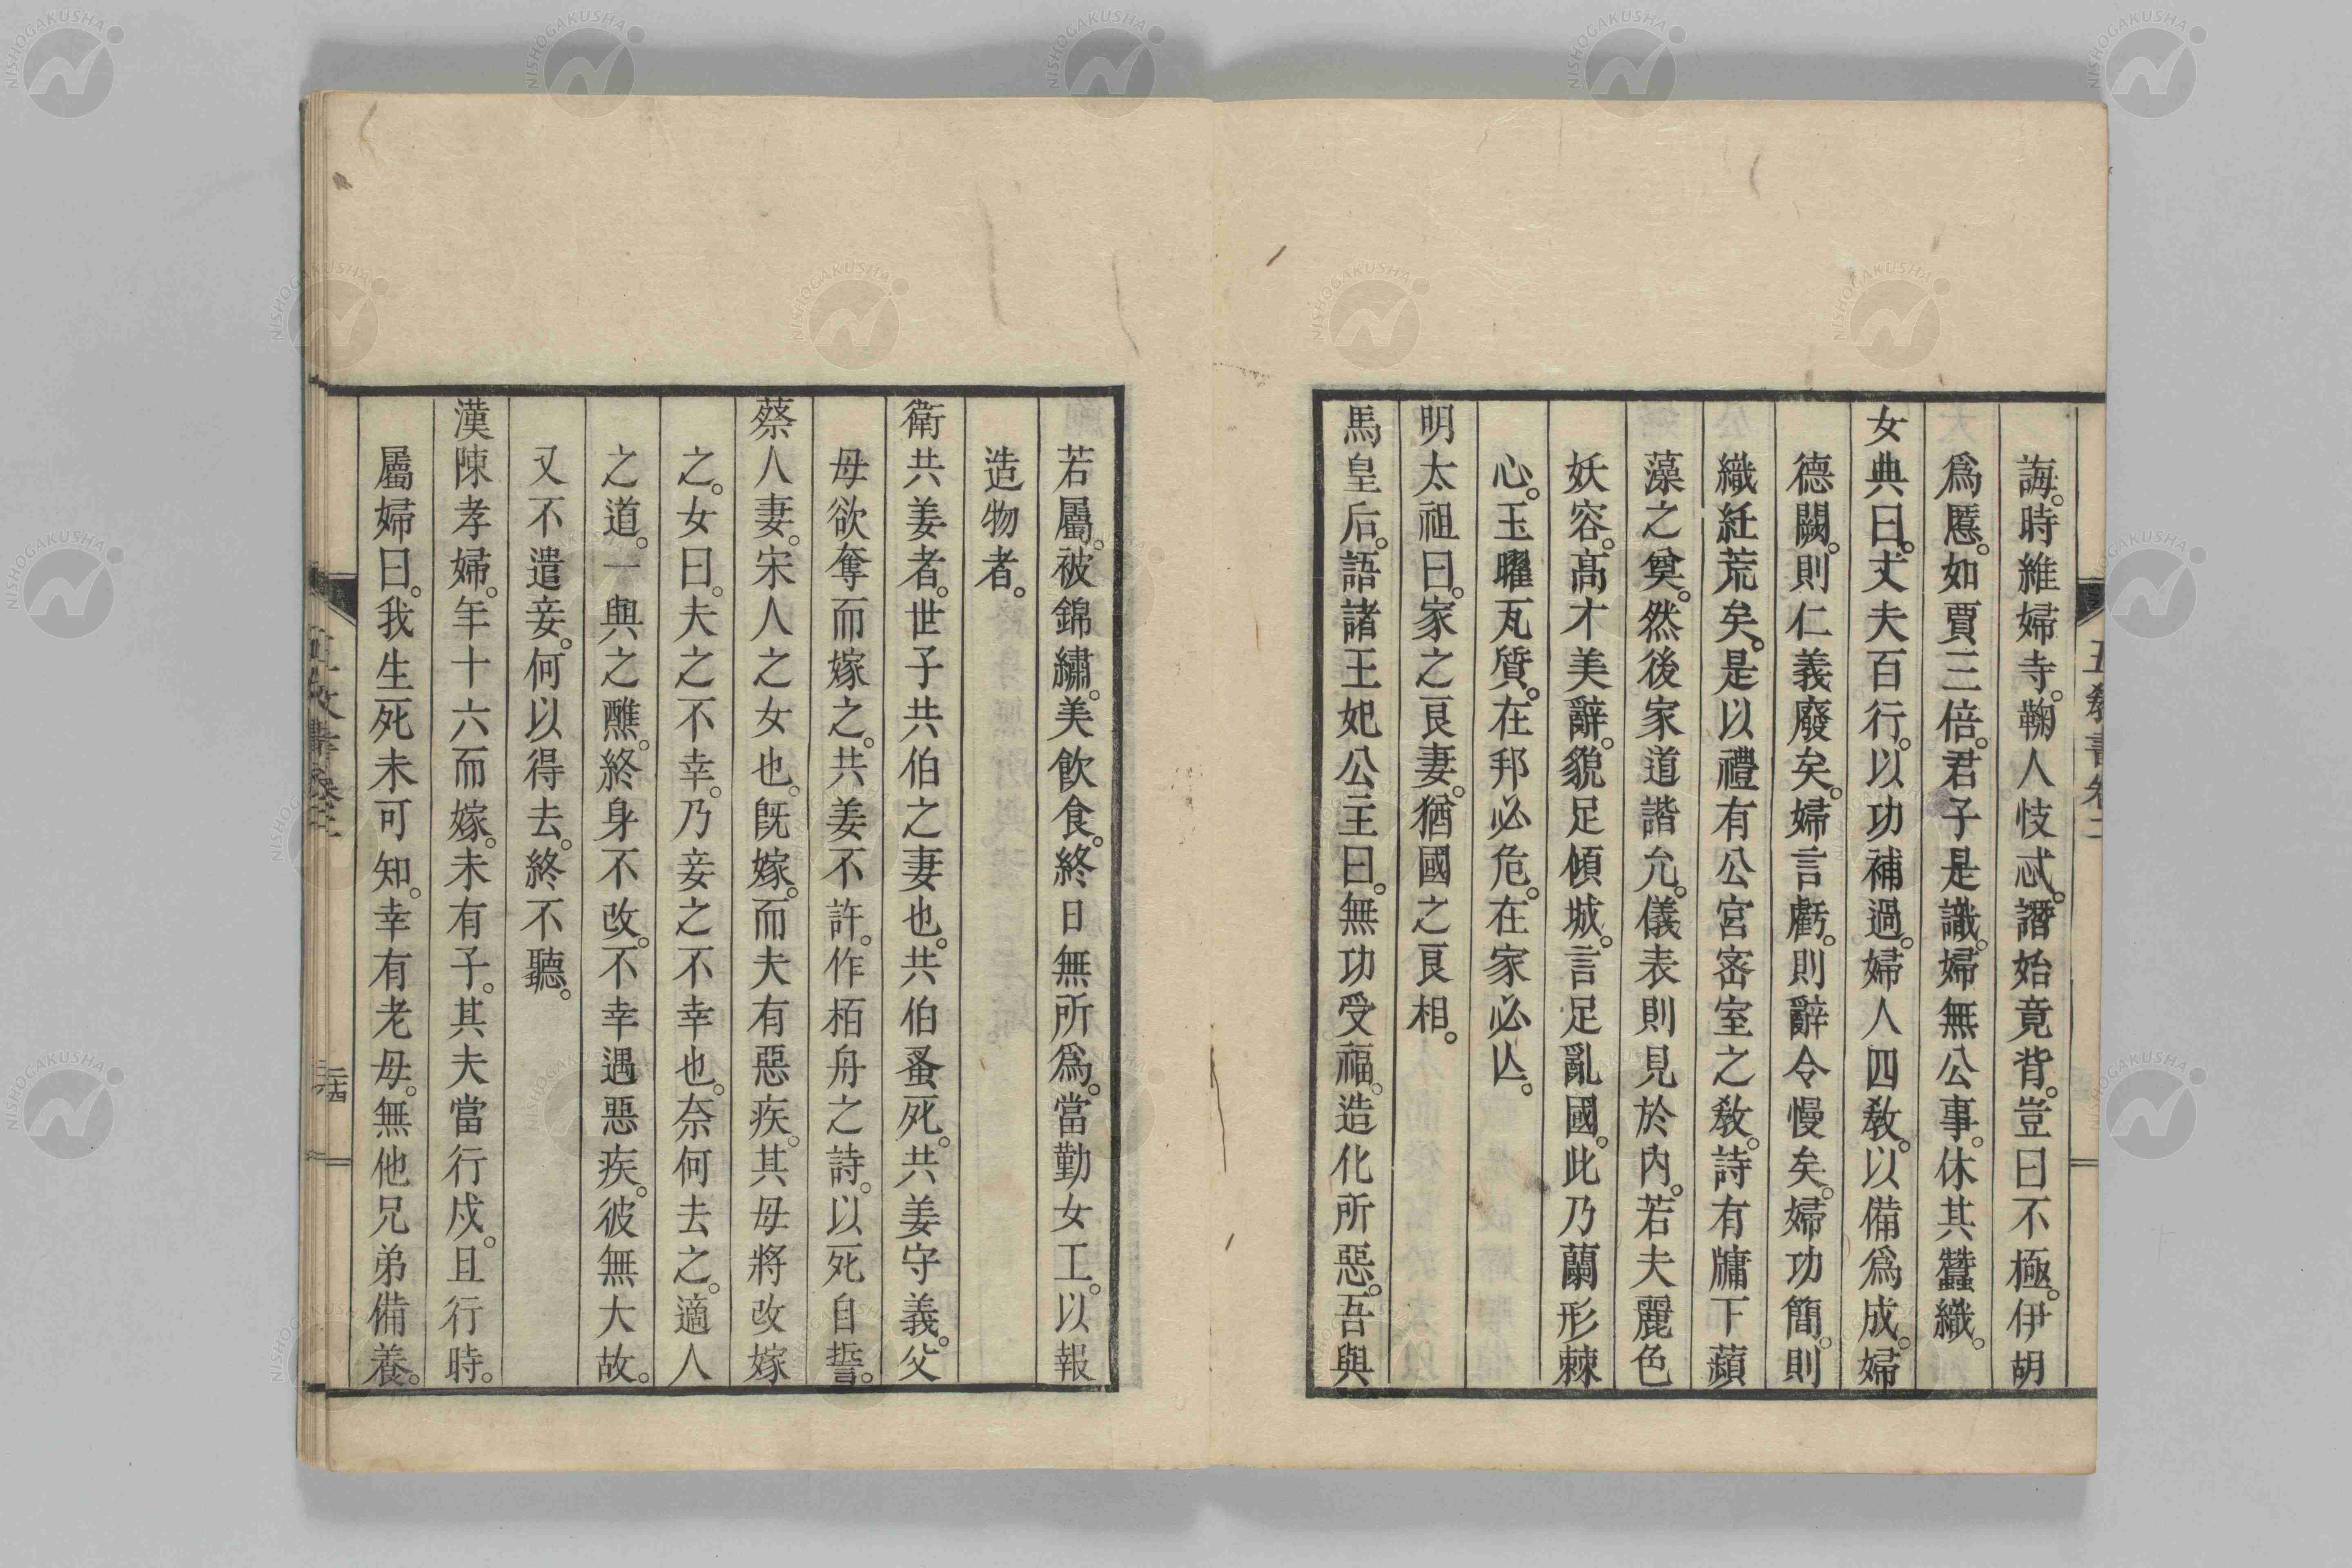 誨。時維婦寺。鞠人忮忒。譖始竟背。豈曰不極。伊胡
爲慝。如賈三倍。君子是識。婦無公事。休其蠶織。
女典曰。丈夫百行。以功補過。婦人四教。以備爲成。婦
德闕。則仁義廢矣。婦言虧。則辭令慢矣。婦功簡。則
織紝荒矣。是以禮有公宮宻室之教。詩有牗下蘋
藻之奠。然後家道諧允。儀表則見於內。若夫麗色
妖容。高才美辭。貌足傾城。言足亂國。此乃蘭形棘
心。玉曜瓦質。在邦必危。在家必亾。
明太祖曰。家之良妻。猶國之良相。
馬皇后。語諸王妃公主曰。無功受福。造化所惡。吾與
五教書卷二
若屬。被錦繡。美飮食。終日無所爲。當勤女工。以報
造物者。
衛共姜者。世子共伯之妻也。共伯蚤死。共姜守義。父
母欲奪而嫁之。共姜不許。作栢舟之詩。以死自誓。
蔡人妻。宋人之女也。旣嫁。而夫有惡疾。其母將改嫁
之。女曰。夫之不幸。乃妾之不幸也。奈何去之。適人
之道。一與之醮。終身不改。不幸遇惡疾。彼無大故。
又不遣妾。何以得去。終不聽。
漢陳孝婦。年十六而嫁。未有子。其夫當行戍。且行時。
屬婦曰。我生死未可知。幸有老母。無他兄弟備養。
NISHOGAKUSHA